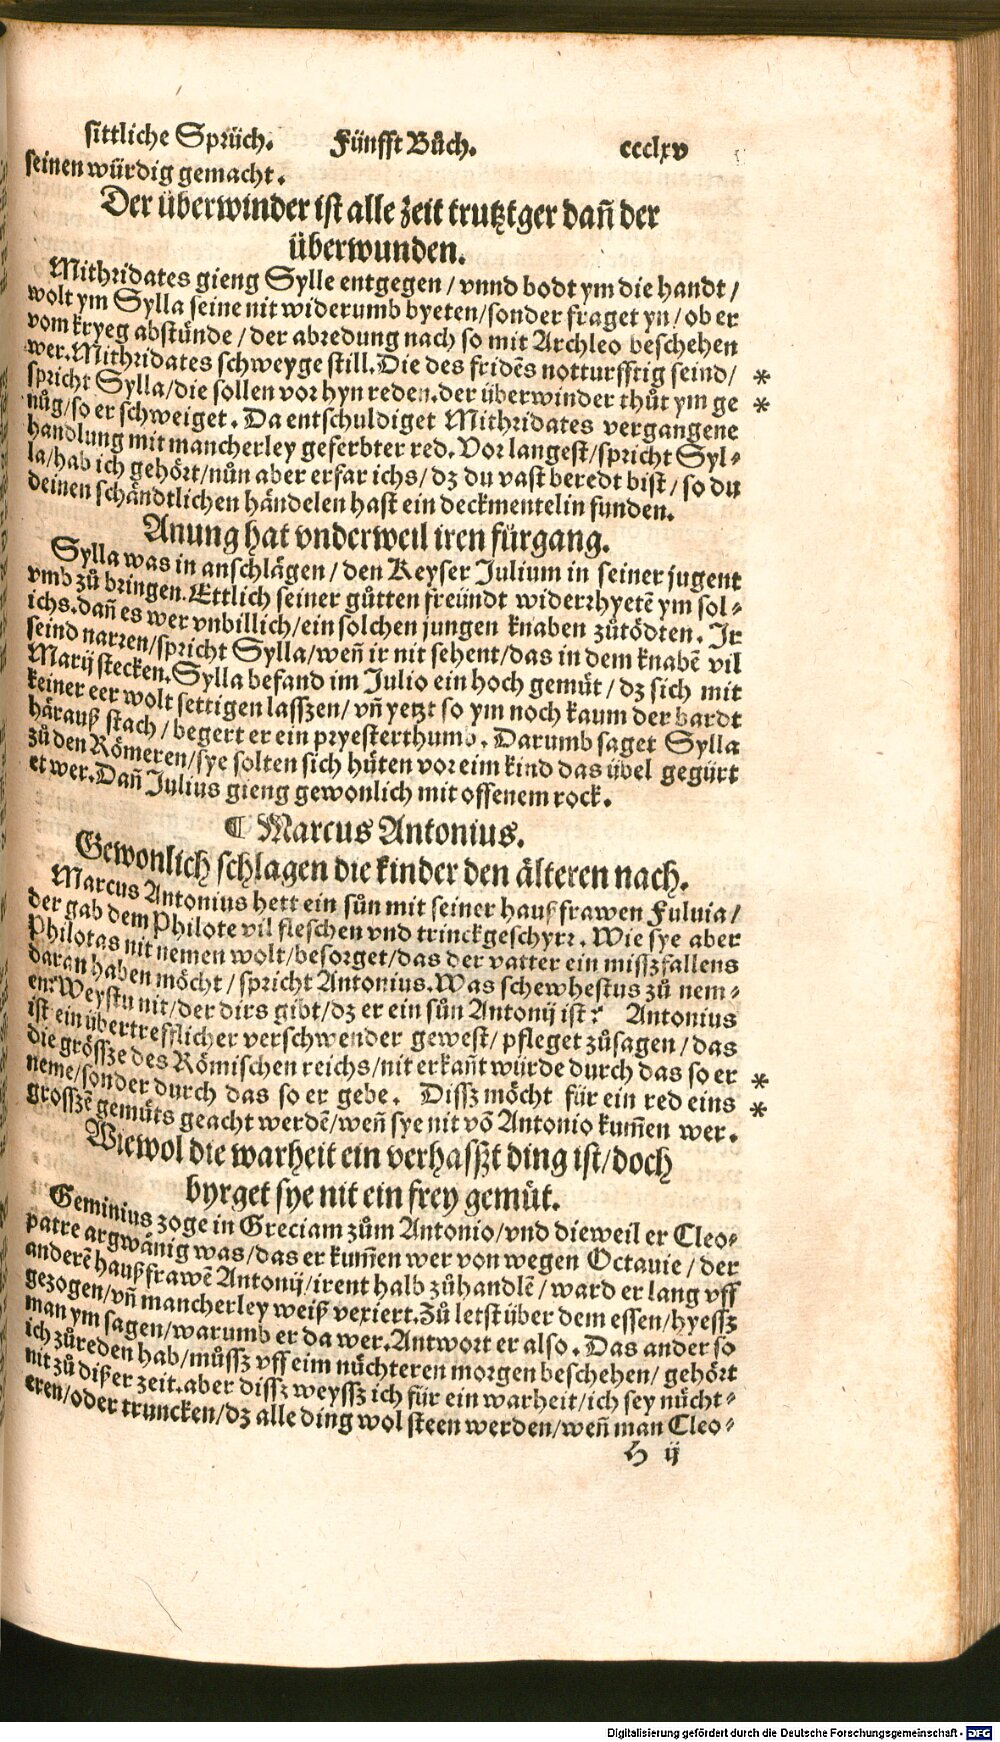 sittliche Sprüch. Fünfft Bůch. ccclxv
seinen würdig gemacht.
Der überwinder ist alle zeit trutztger dañ der
überwunden.
Mithridates gieng Sylle entgegen / vnnd bodt ym die handt /
wolt ym Sylla seine nit widerumb byeten / sonder fraget yn / ob er
vom kryeg abstünde / der abredung nach so mit Archleo beschehen
wer. Mithridates schweyge still. Die des fridēs notturfftig seind / *
spricht Sylla / die sollen vor hyn reden. der überwinder thůt ym ge *
nůg / so er schweiget. Da entschuldiget Mithridates vergangene
handlung mit mancherley geferbter red. Vor langest / spricht Syl⸗
la / hab ich gehört / nůn aber erfar ichs / dz du vast beredt bist / so du
deinen schändtlichen händelen hast ein deckmentelin funden.
Anung hat vnderweil iren fürgang.
Sylla was in anschlägen / den Keyser Julium in seiner jugent
vmb zů bringen. Ettlich seiner gůtten freündt widerrhyetē ym sol⸗
ichs. dañ es wer vnbillich / ein solchen jungen knaben zůtödten. Ir
seind narren / spricht Sylla / weñ ir nit sehent / das in dem knabē vil
Marij stecken. Sylla befand im Julio ein hoch gemüt / dz sich mit
keiner eer wolt settigen lasszen / vñ yetzt so ym noch kaum der bardt
härauß stach / begert er ein pryesterthumb. Darumb saget Sylla
zů den Römeren / sye solten sich hüten vor eim kind das übel gegürt
et wer. Dañ Julius gieng gewonlich mit offenem rock.
¶ Marcus Antonius.
Gewonlich schlagen die kinder den älteren nach.
Marcus Antonius hett ein sůn mit seiner haußfrawen Fuluia /
der gab dem Philote vil fleschen vnd trinckgeschyrr. Wie sye aber
Philotas nit nemen wolt / besorget / das der vatter ein misszfallens
daran haben möcht / spricht Antonius. Was schewhestus zů nem⸗
en? Weystu nit / der dirs gibt / dz er ein sůn Antonij ist? Antonius
ist ein übertrefflicher verschwender gewest / pfleget zůsagen / das
die grössze des Römischen reichs / nit erkañt würde durch das so er *
neme / sonder durch das so er gebe. Dissz möcht für ein red eins *
grosszē gemüts geacht werdē / weñ sye nit võ Antonio kum̃en wer.
Wiewol die warheit ein verhasszt ding ist / doch
byrget sye nit ein frey gemüt.
Geminius zoge in Greciam zům Antonio / vnd dieweil er Cleo⸗
patre argwänig was / das er kum̃en wer von wegen Octauie / der
anderē haußfrawē Antonij / irent halb zůhandlē / ward er lang vff
gezogen / vñ mancherley weiß vexiert. Zů letst über dem essen / hyessz
man ym sagen / warumb er da wer. Antwort er also. Das ander so
ich zůreden hab / můssz vff eim nüchteren morgen beschehen / gehört
nit zů dißer zeit. aber dissz weyssz ich für ein warheit / ich sey nücht⸗
eren / oder truncken / dz alle ding wol steen werden / weñ man Cleo⸗
H ij
Digitalisierung gefördert durch die Deutsche Forschungsgemeinschaft - DFG